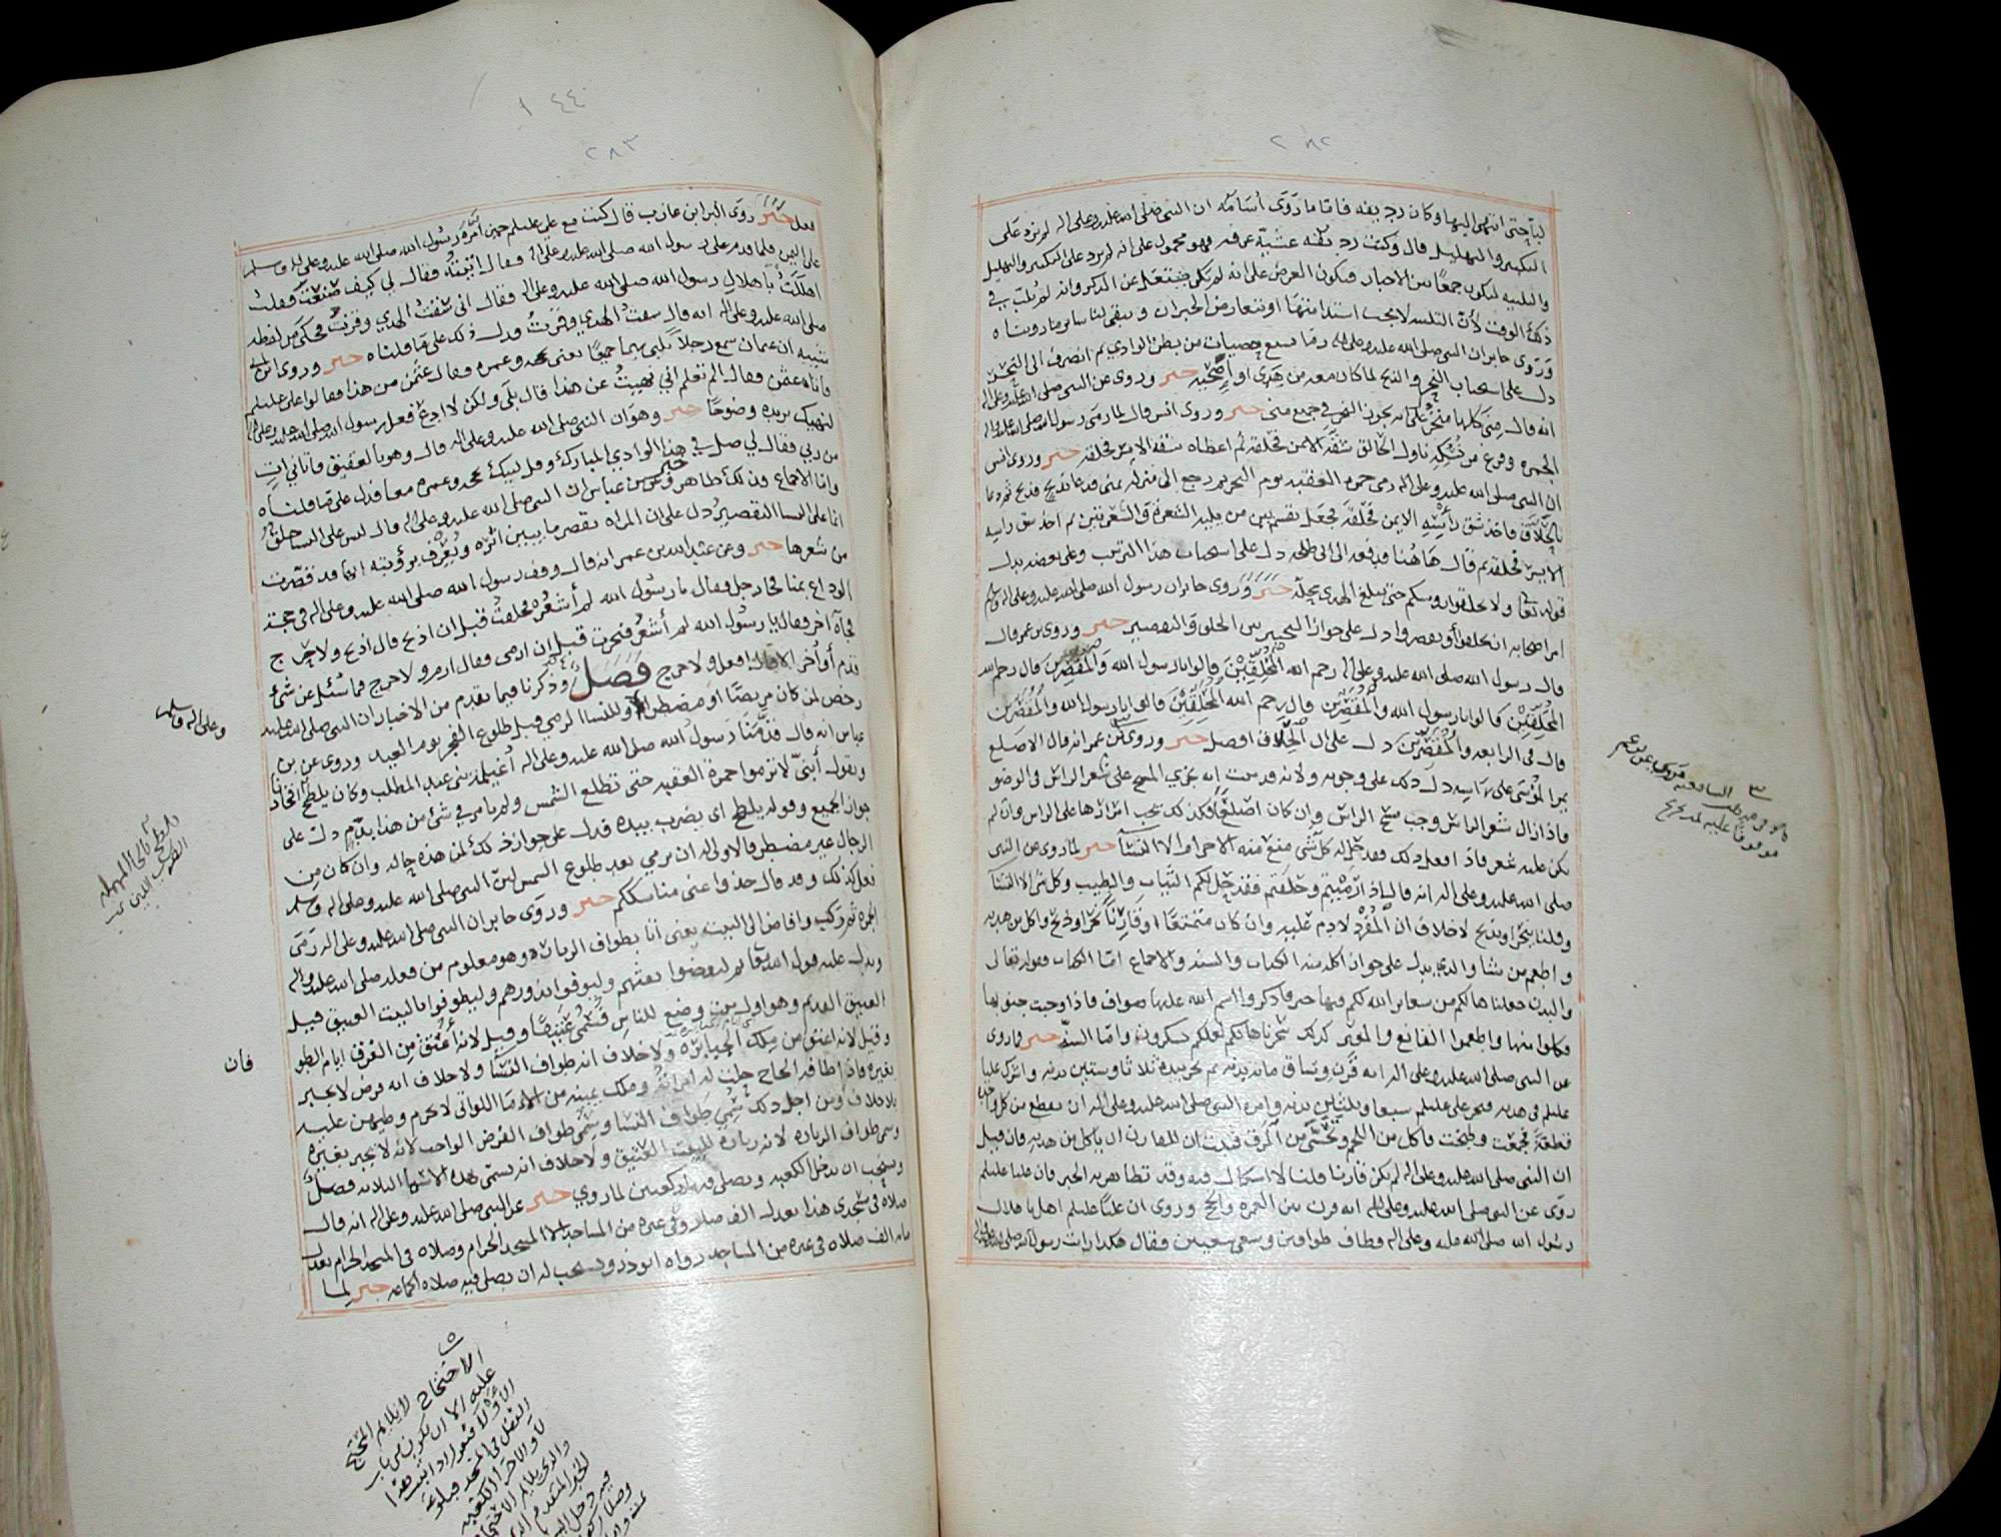 ٢٨٢
لبا حتى انتهى اليها وكان رديفه فاما ما روى أسامه ان النبي صلى الله عليه وعلى اله لم يزد على
التكبير والتهليل قال وكنت رديفه عشية عرفه فهو محمول على انه لم يزد على التكبير والتهليل
والتلبيه ليكون جمعًا بين الاخبار ويكون الغرض على انه لم يكن يشتغل عن الذكر وانه لم يُلبّ في
ذلك الوقت لأن التلبيه لا يجب استدامتها او يتعارض الخبران ويبقى لنا سائر ما رويناه
وَروى جابر ان النبي صلى الله عليه وعلى اله رمى بسبع حصيات من بطن الوادي ثم انصرف الى النحر
دل على استحباب النحر والذبح لما كان معه من هَدي او أضحيه خبر وروى عن النبي صلى الله عليه وعلى اله
انه قال مِنى كلها منحر دل على انه يجوز النحر في جميع منى خبر وروى انس قال لما رمى رسول الله صلى الله عليه واله
الجمره وفرغ من نُسُكِه ناول الحالق شقَّه الايمن فحلقه ثم اعطاه شقه الايسر فحلقه خبر وروى انس
ان النبي صلى الله عليه وعلى اله رمى جمرة العقبه يوم النحر ثم رجع الى منزله بمنى فدعا بذبح فذبح ثم دعا
بالحلّاق فاخذ شق رأسِه الايمن فحلقه فجعل يقسم بين من يليه الشعرة والشعرتين ثم اخذ شق راسه
الايسر فحلقه ثم قال هَاهُنا فدفعه الى ابى طلحه دل على استحباب هذا الترتيب وعلى بعضه يدل
قوله تعالى ولا تحلقوا روسكم حتى يبلغ الهدي محله خبر وَروى جابر ان رسول الله صلى الله عليه وعلى اله وسلم
امر اصحابه ان يحلقوا أو يقصروا دل على جواز التخيير بين الحلق والتقصير خبر وروى بن عمر قال
قال رسول الله صلى الله عليه وعلى اله رحم الله المُحلِّقِيْن قالوا يا رسول الله والمُقَصِّرين قال رحم الله
المُحَلّقِيْن قالوا يا رسول الله والمُقَصِّرين قال رحم الله المُحَلّقِيْن قالوا يا رسول الله والمُقَصّرين
قال في الرابعه والمُقَصّرين دل على ان الحِلَاق افضل خبر وروى عن عمر انه قال الاصلع
يمر المُوْسَى على رَاسِه دلّ ذلك على وجوبه ولانه قد ثبت انه يجزي المسح على شعر الراس في الوضو
فاذا زال شعر الراس وجب مسح الراس وإن كان اصلعًا فكذلك يجب امرارها على الراس وان لم
يكن عليه شعر فاذا فعل ذلك فقد حلّ له كل شَى منع منه الاحرام الا النسَآ خبر لما روى عن النبي
صلى الله عليه وعلى اله انه قال اذا رَمَيْتم وحَلَقتم فقد حَلّ لكم الثّياب والطيب وكل شى الا النسَآ
وقلنا ينحر او يذبح لا خلاف ان المُفْرِدَ لا دم عَليه وان كان متمتعًا او قَارِنًا نحر او ذبح واكل من هديه
واطعم من شا والذي يدل على جواز اكله منه الكتاب والسنه والاجماع امّا الكتاب فقوله تعالى
والبدن جعلناها لكم من شعائر الله لكم فيها خير فاذكروا اسم الله عليها صواف فاذا وجبت جنوبها
فكلوا منها واطعموا القانع والمعتر كذلك سخرناها لكم لعلكم تشكرون واما السنّه خبر فما روى
عن النبي صلى الله عليه وعلى اله انه قَرَن وسَاق مائة بدنه ثم نحر بيده ثلاثا وستين بدنه واشرك عليا
عليلم في هديه فنحر على عليلم سبعا وثلثين بدنه وامره النبي صلى الله عليه وعلى اله ان يقطع من كل واحده
قطعَةً فجمعَت وطبخت فاكل من اللحم وتحَسَّى من المَرَق فثبت ان للقارن ان ياكل من هديه فان قيل
ان النبي صلى الله عليه وعلى اله لم يكن قارنا قلنا لا اشكال فيه وقد تظاهر به الخبر فان عليا عليلم
روى عن النبي صلى الله عليه وعلى اله انه قرن بين العمره والحج وروى ان عليًا عليلم اهل باهلال
رسُول الله صلى الله عليه وعلى اله وطاف طوافين وسعى سعيين وقال هكذا رايت رسول الله صلى الله عليه وعلى اله
١٤٤
٢٨٣
فعل خبر روَى البرا ابن عازب قال كنت مع علي عليلم حين أمَّره رسُول الله صلى الله عليه وعلى اله وسلم
على اليمن فلما قدم على رسول الله صلى الله عليه وعلى اله وقال اتيتهُ فقال لي كيف صَنعت فقلت
اهللتُ باهلال رسول الله صلى الله عليه وعلى اله فقال اني سُقتُ الهدي وقرنتُ فحكى
صلى الله عليه وعلى اله انه قال سقتُ الهدي وقرَنتُ فدل ذلك على مَا قلناه خبر وروى
ان عثمان سمع رجلاً يلبي بهما جميعًا يعنى بحجه وعمره فقال عثمن من هذا فقالوا على عليلم
واتاه عثمن وقال الم تعلم اني نهيتُ عن هذا قال بلَى ولكن لا ادع فعل رسول الله صلى الله عليه وعلى اله
لنهيك يزيده وضوحًا خبر وهو ان النبي صلى الله عليه وعلى اله قال وهو بالعقيق اتاني اتٍ
من ربي فقال لي صل في هذا الوادي المبارك وقل لبيك بحجه وعمره معا فدل على ما قلناه
واما الاجماع فذلك ظاهر خبر وعن بن عباس ان النبي صلى الله عليه وعلى اله قال ليس على النسا حلق
انما على النسا التقصير دل على ان المراه تقصر ما يبين اثره ويُعرَف برؤيته انها قد قصّرت
من شعرها خبر وعن عبد الله بن عمر انه قال وقف رسول الله صلى الله عليه وعلى اله في حجة
الوداع بمنا فجا رجل فقال يا رسُول الله لم أشعُر فحلقتُ قبل ان اذبح قال اذبح ولا حَرج
فجآه اخر فقال يا رسُول الله لم أشعُر فنحرت قبل ان ارمى فقال ارم ولا حرج فما سُئل عن شئ
قدم أو أُخر الا قال افعل ولا حرج فَصَلٌ وذكرنا فيما تقدم من الاخبار ان النبي صلى الله عليه
رخص لمن كان مريضًا او مضطرًا وللنسا الرمي قبل طلوع الفجر يوم العيد وروى عن بن
عباس انه قال قدَّمَنا رَسولُ الله صلى الله عليه وعلى اله أغيلمة بني عبد المطلب وكان يلطح افخاذنا
ويقول أَبَنيَّ لا ترموا جمرة العقبه حتى تطلع الشمس ولم يامر في شئ من هذا بدَمٍ دل على
جواز الجميع وقوله يلطح اى يضرب بيده فدل على جواز ذلك لمن هذه حاله وان كان من
الرجال غير مضطر فالاولى له ان يرمي بعد طلوع الشمس لان النبي صلى الله عليه وعلى اله وسلم
فعل كذلك وقد قال خذوا عنى مناسككم خبر وروَى جابر ان النبي صلى الله عليه وعلى اله رَمَى
الجمره ثم ركب وافاض الى البيت يعنى أتا بطواف الزياره وهو معلوم من فعله صلى الله عليه واله
ويدل عليه قول الله تعالى ثم ليقضوا تفثهم وليوفوا نذورهم وليطوفوا بالبيت العتيق قيل
العتيق القديم وهو اول بيت وضع للناس فسُمّى عَتيقًا وقيل لانه أُعتِقَ مِن الغَرق ايام الطو
وقيل لانه اعتق من مِلك الجبابره ولا خلاف انه طواف النسَآ ولا خلاف انه فرض لا يجبر
بغيره فاذا طافه الحاج حلت له امرأتهُ وملك يمينه من الاماء اللواتي لا يحرم وطيهن عليه
بلا خلاف ومن اجل ذلك سُمّي طَوَاف النسَا وسُمّى طواف الفرض الواجب لانه لا يجبر بغيره
وسمي طواف الزياره لانه زيارة للبيت العتيق ولا خلاف انه يسمى بهذه الاسما الثلاثه فصلٌ
ويستحب ان يدخل الكعبه ويصلى فيها ركعتين لما روي خبر عن النبي صلى الله عليه وعلى اله انه قال
صلاة في مسجدي هذا تعدل الف صلاه في غيره من المساجد الا المسجد الحرام وصلاه في المسجد الحرام تعدل
مائة الف صلاه في غيره من المساجد رواه ابو ذر ويستحب له ان يصلى فيه صلاه الجماعه خبر لما
وعلى اله وسلم
فان
الاحتجاج لا يلايم المحتج
عليه الا ان يكون من باب